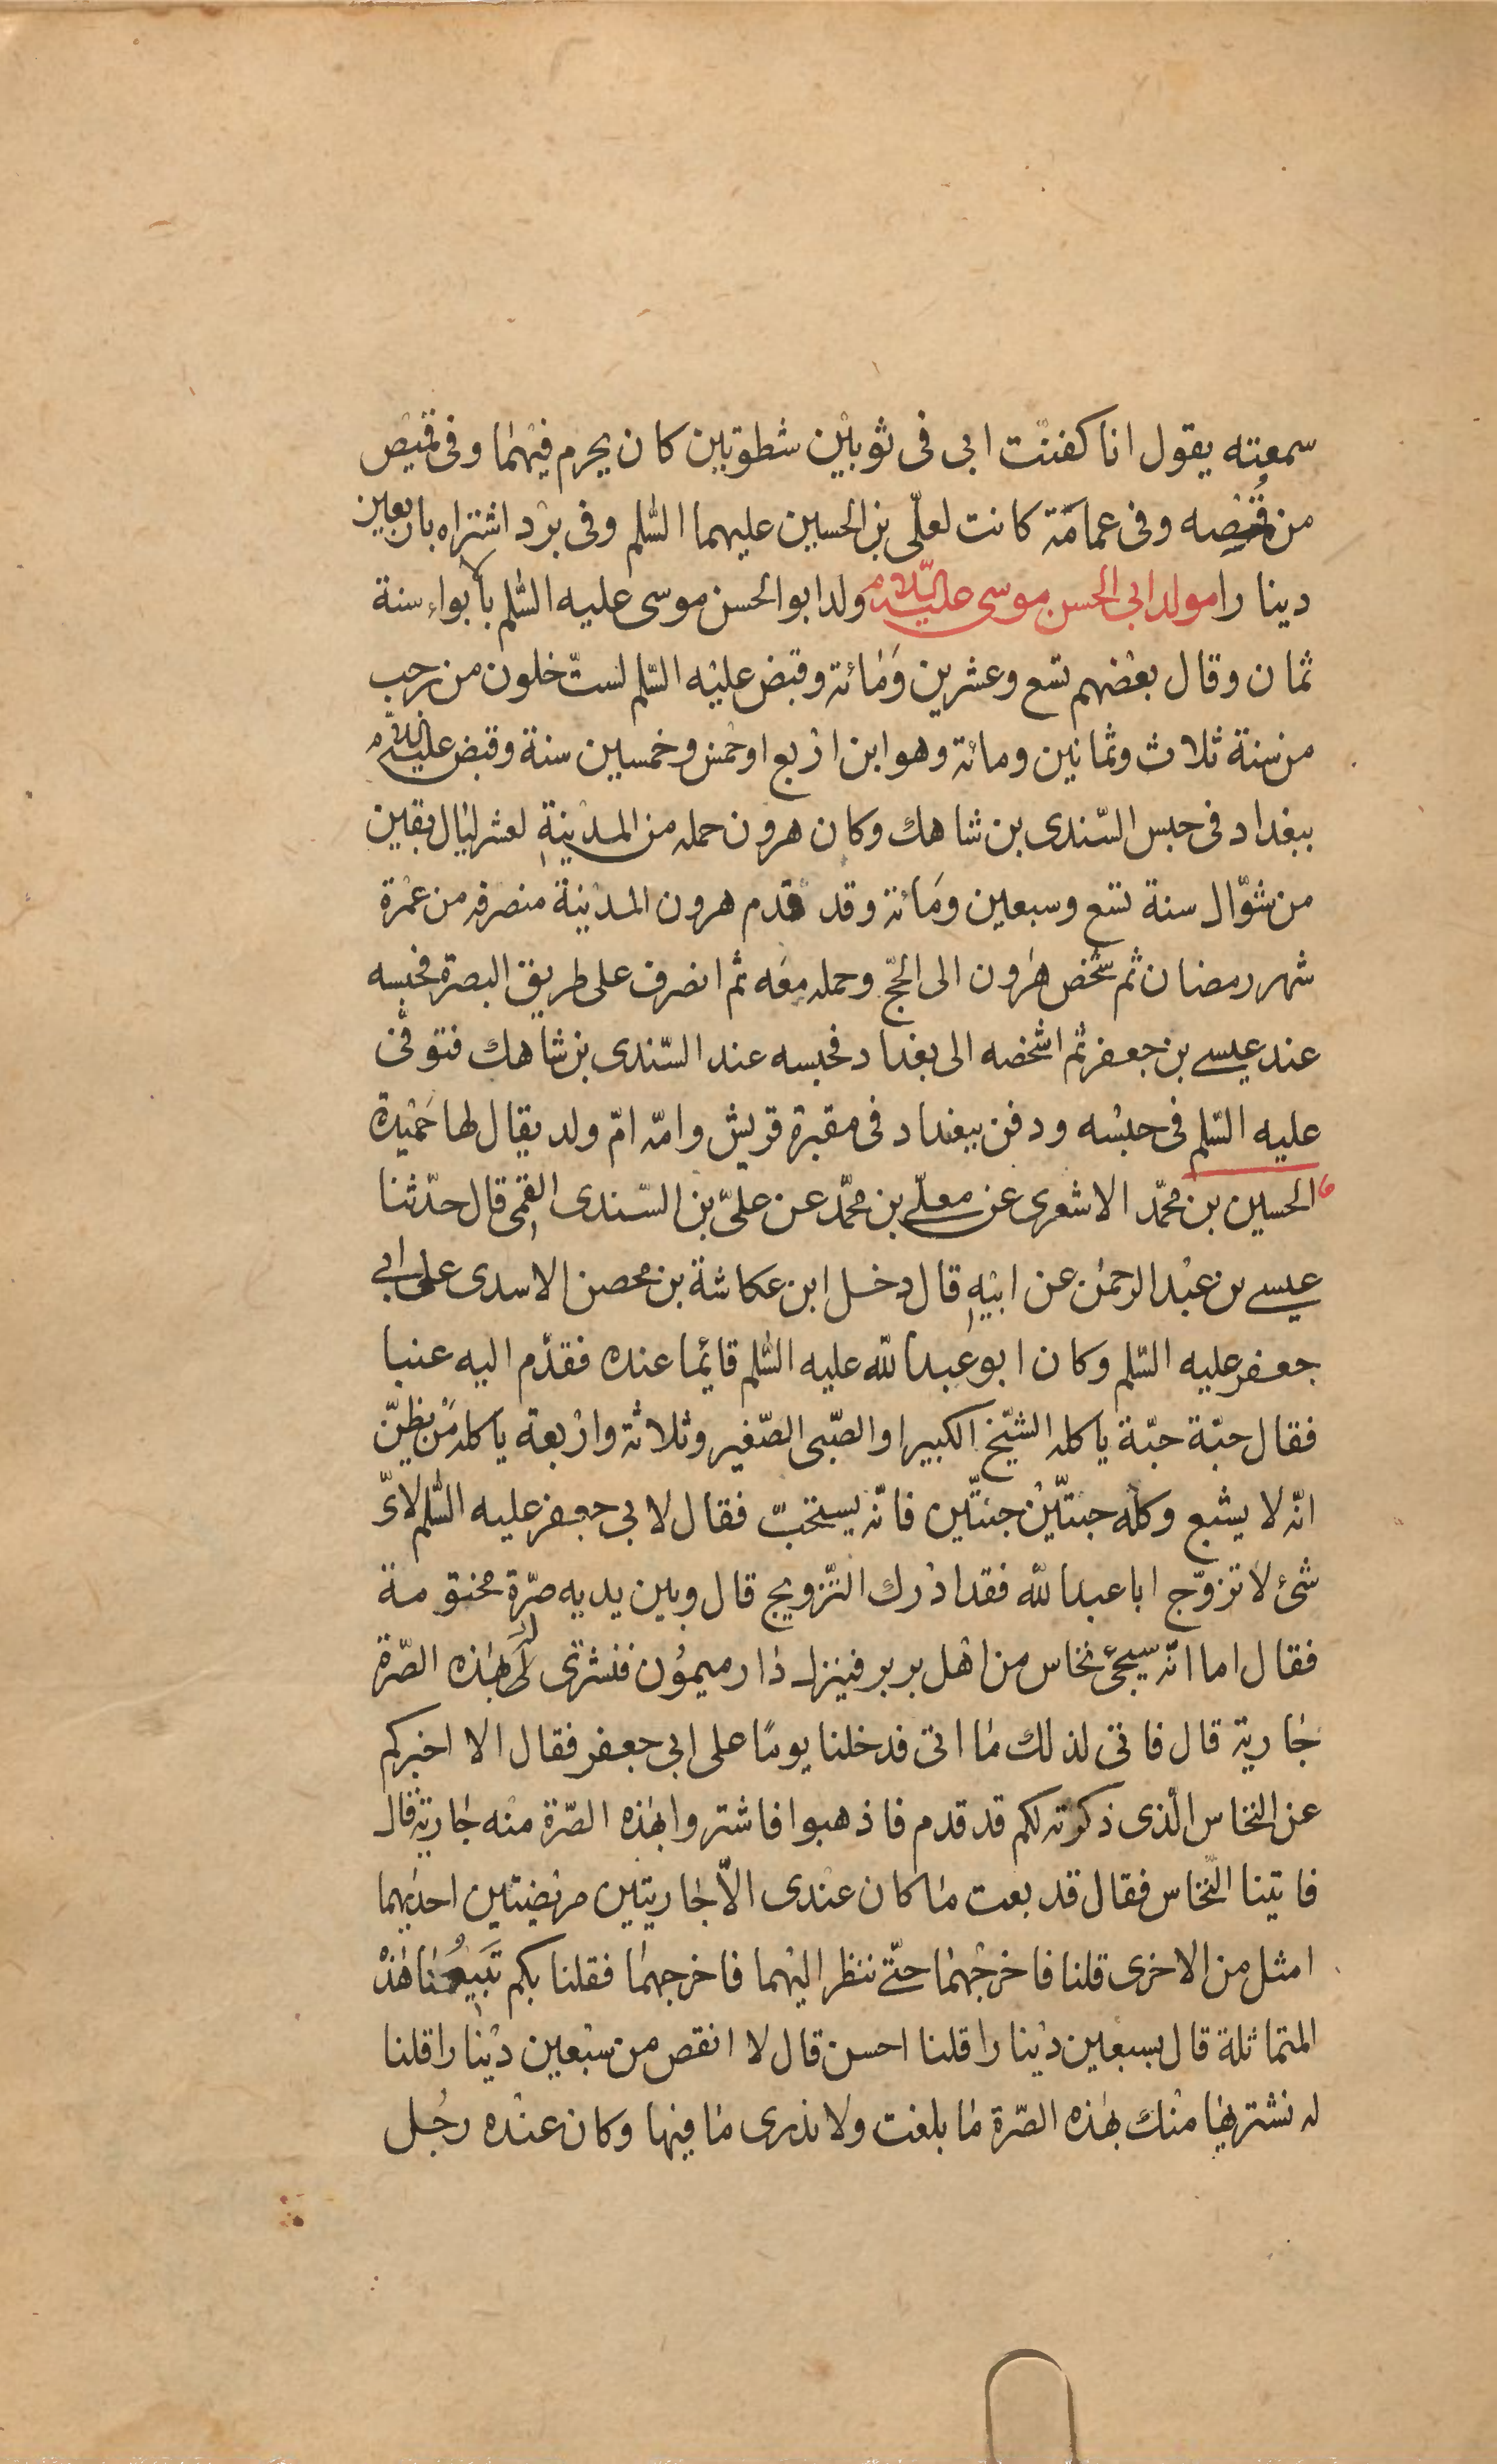 سمعته يقول انا كفنت ابى فى ثوبين شطويين كان يحرم فيهما وفى قميص
من قمصه وفى عمامة كانت لعلّى بن الحسين عليهما السّلم وفى برد اشتراه باربعين
دينارا مولد ابى الحسن موسى عليه السّلام ولد ابو الحسن موسى عليه السّلم بالابواء سنة
ثمان وقال بعضهم تسع وعشرين ومائة وقبض عليه السّلم لستّ خلون من رجب
من سنة ثلاث وثمانين ومائة وهو ابن اربع او خمس وخمسين سنة وقبض عليه السّلام
ببغداد فى حبس السّندى بن شاهك وكان هرون حمله من المدينة لعشر ليال بقين
من شوّال سنة تسع وسبعين ومائة وقد قدم هرون المدينة منصرفه من عمرة
شهر رمضان ثم شخص هرون الى الحجّ وحمله معه ثم انصرف على طريق البصرة فحبسه
عند عيسى بن جعفر ثم اشخصه الى بغداد فحبسه عند السّندى بن شاهك فتوفّى
عليه السّلم فى حبسه ودفن ببغداد فى مقبرة قريش وامّه امّ ولد يقال لها حميدة
الحسين بن محمّد الاشعرى عن معلّى بن محمّد عن علىّ بن السّندى القمى قال حدّثنا
عيسى بن عبد الرحمن عن ابيه قال دخل ابن عكاشة بن محصن الاسدى على ابى
جعفر عليه السّلم وكان ابو عبد الله عليه السّلم قائما عنده فقدّم اليه عنبا
فقال حبّة حبّة ياكله الشيّخ الكبير او الصّبى الصّغير وثلاثة واربعة ياكله من يظنّ
انّه لا يشبع وكله حبتّين حبتّين فانّه يستحبّ فقال لابى جعفر عليه السّلم لاىّ
شئ لا تزوّج ابا عبد الله فقد ادرك التّزويج قال وبين يديه صرّة مختومة
فقال اما انّه سيجئ نخاس من اهل بربر فينزل دار ميمون فنشترى له بهذه الصّرة
جارية قال فاتى لذلك ما اتى فدخلنا يوما على ابى جعفر فقال الا اخبركم
عن النخاس الّذى ذكرته لكم قد قدم فاذهبوا فاشتروا بهذه الصّرة منه جارية قال
فاتينا النّخاس فقال قد بعت ما كان عندى الاّ جاريتين مريضتين احديهما
امثل من الاخرى قلنا فاخرجهما حتّى ننظر اليهما فاخرجهما فقلنا بكم تبيعنا هذه
المتماثلة قال بسبعين دينارا قلنا احسن قال لا انقص من سبعين دينارا قلنا
له نشتريها منك بهذه الصّرة ما بلغت ولا ندرى ما فيها وكان عنده رجل